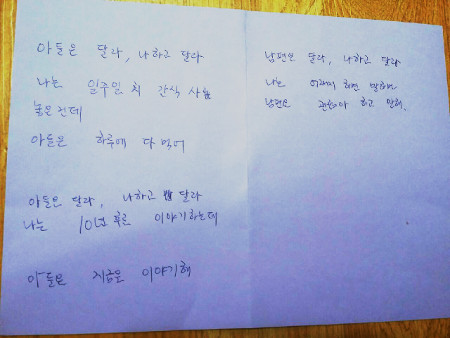 아들은 달라, 나하고 달라
나는 일주일 치 간식 사
놓은건데
아들은 하루에 다 먹어
아들은 달라, 나하고 달라
나는 10년 후를 이야기하는데
아들은 지금을 이야기해
남편은 달라, 나하고 달라
나는 하면
남편은 하고 말해.